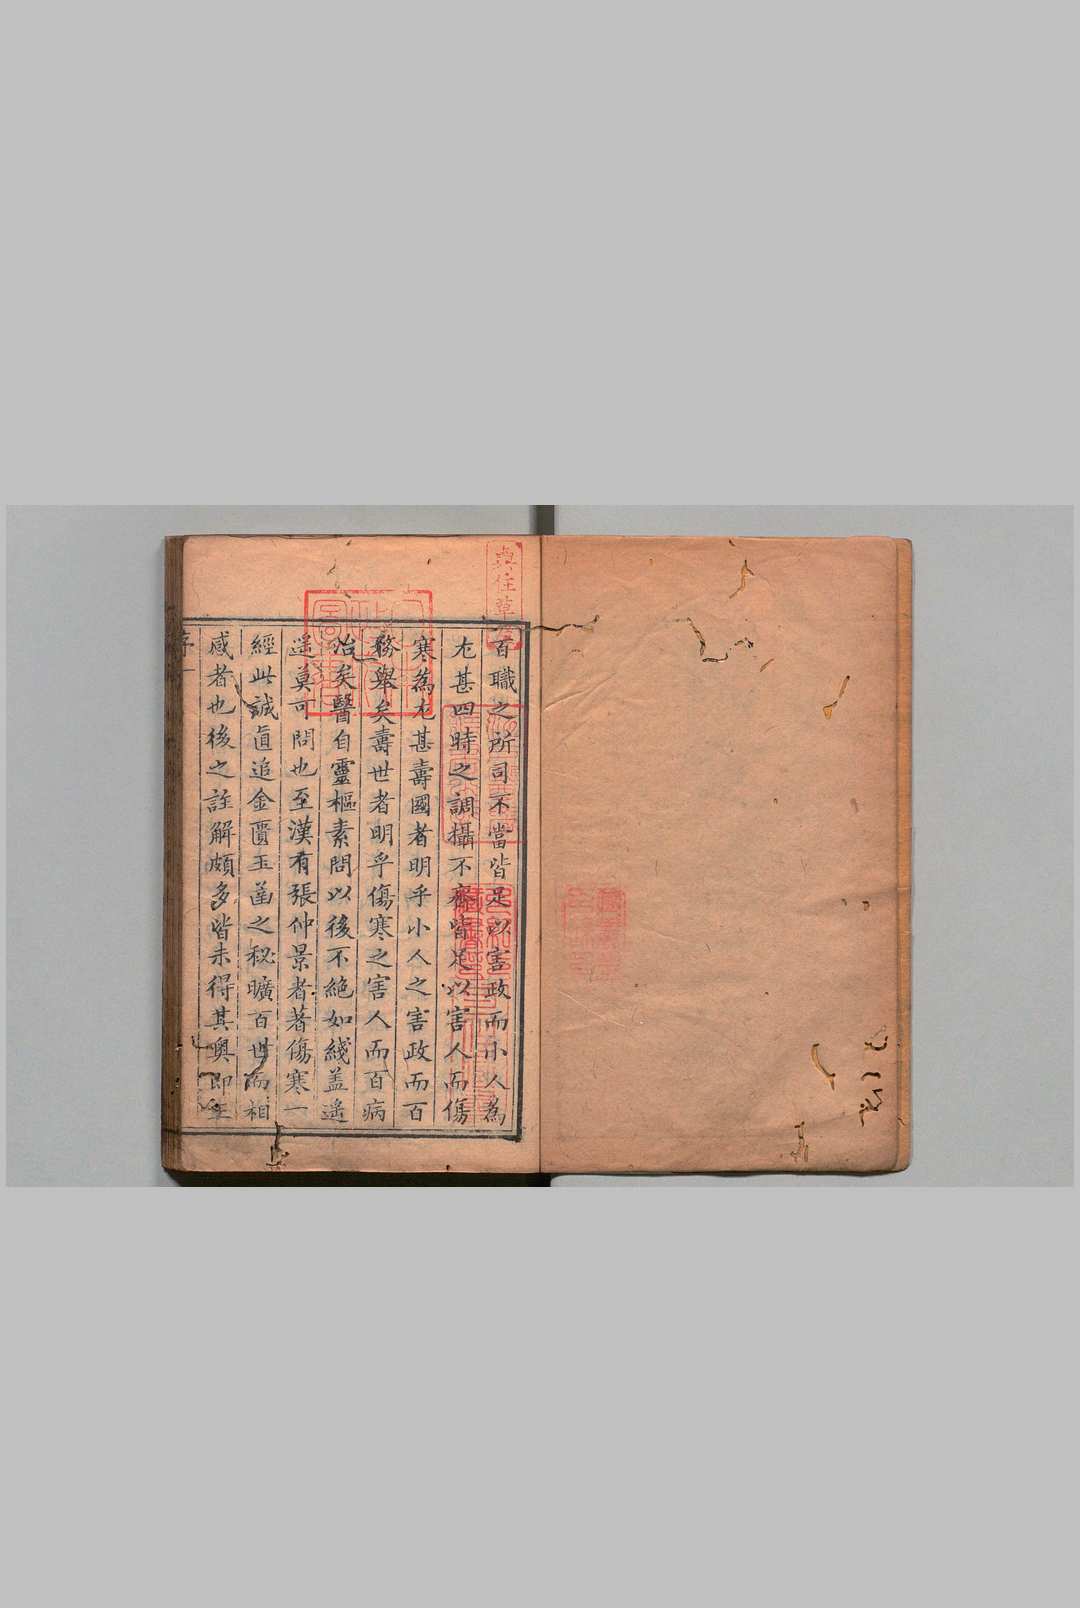 百職之所司不當皆足以害政而小人為
尤甚四時之調攝不齊皆足以害人而傷
寒為尤甚壽國者明乎小人之害政而百
務舉矣壽世者明乎傷寒之害人而百病
治矣醫自靈樞素問以後不絕如綫盖遙
遙莫可問也至漢有張仲景者著傷寒一
經此誠直追金匱玉函之秘曠百世而相
感者也後之註解頗多皆未得其奥即王
序一